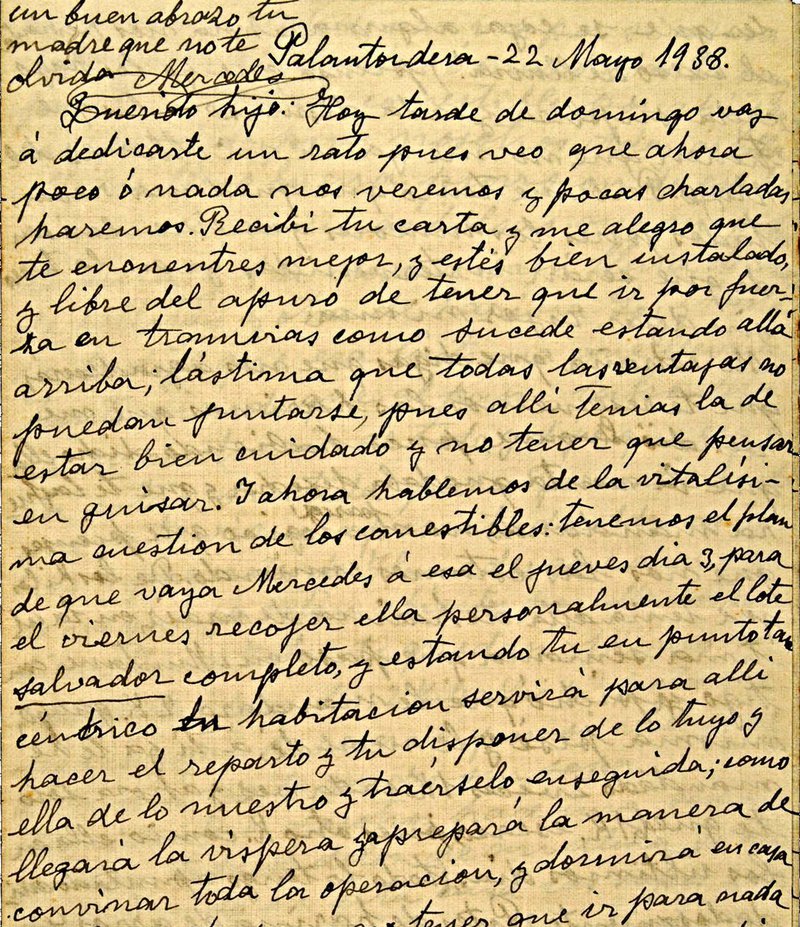 un buen abrazo tu
madre que no te
olvida Mercedes
Palautordera - 22 Mayo 1938.
Querido hijo: Hoy tarde de domingo voy
á dedicarte un rato pues veo que ahora
poco ó nada nos veremos y pocas charladas
haremos. Recibi tu carta y me alegro que
te encuentres mejor, y estés bien instalado,
y libre del apuro de tener que ir por fuer-
za en tranvias como sucede estando allá
arriba; lástima que todas las ventajas no
puedan juntarse, pues alli tenias la de
estar bien cuidado y no tener que pensar
en guisar. Y ahora hablemos de la vitalisi-
ma cuestion de los comestibles: tenemos el plan
de que vaya Mercedes á esa el jueves dia 3, para
el viernes recojer ella personalmente el lote
salvador completo, y estando tu en punto tan
céntrico tu habitacion servirá para alli
hacer el reparto y tu disponer de lo tuyo y
ella de lo nuestro y traérselo enseguida; como
llegará la vispera ya prepará la manera de
convinar toda la operacion, y dormirá en casa
tener que ir para nada